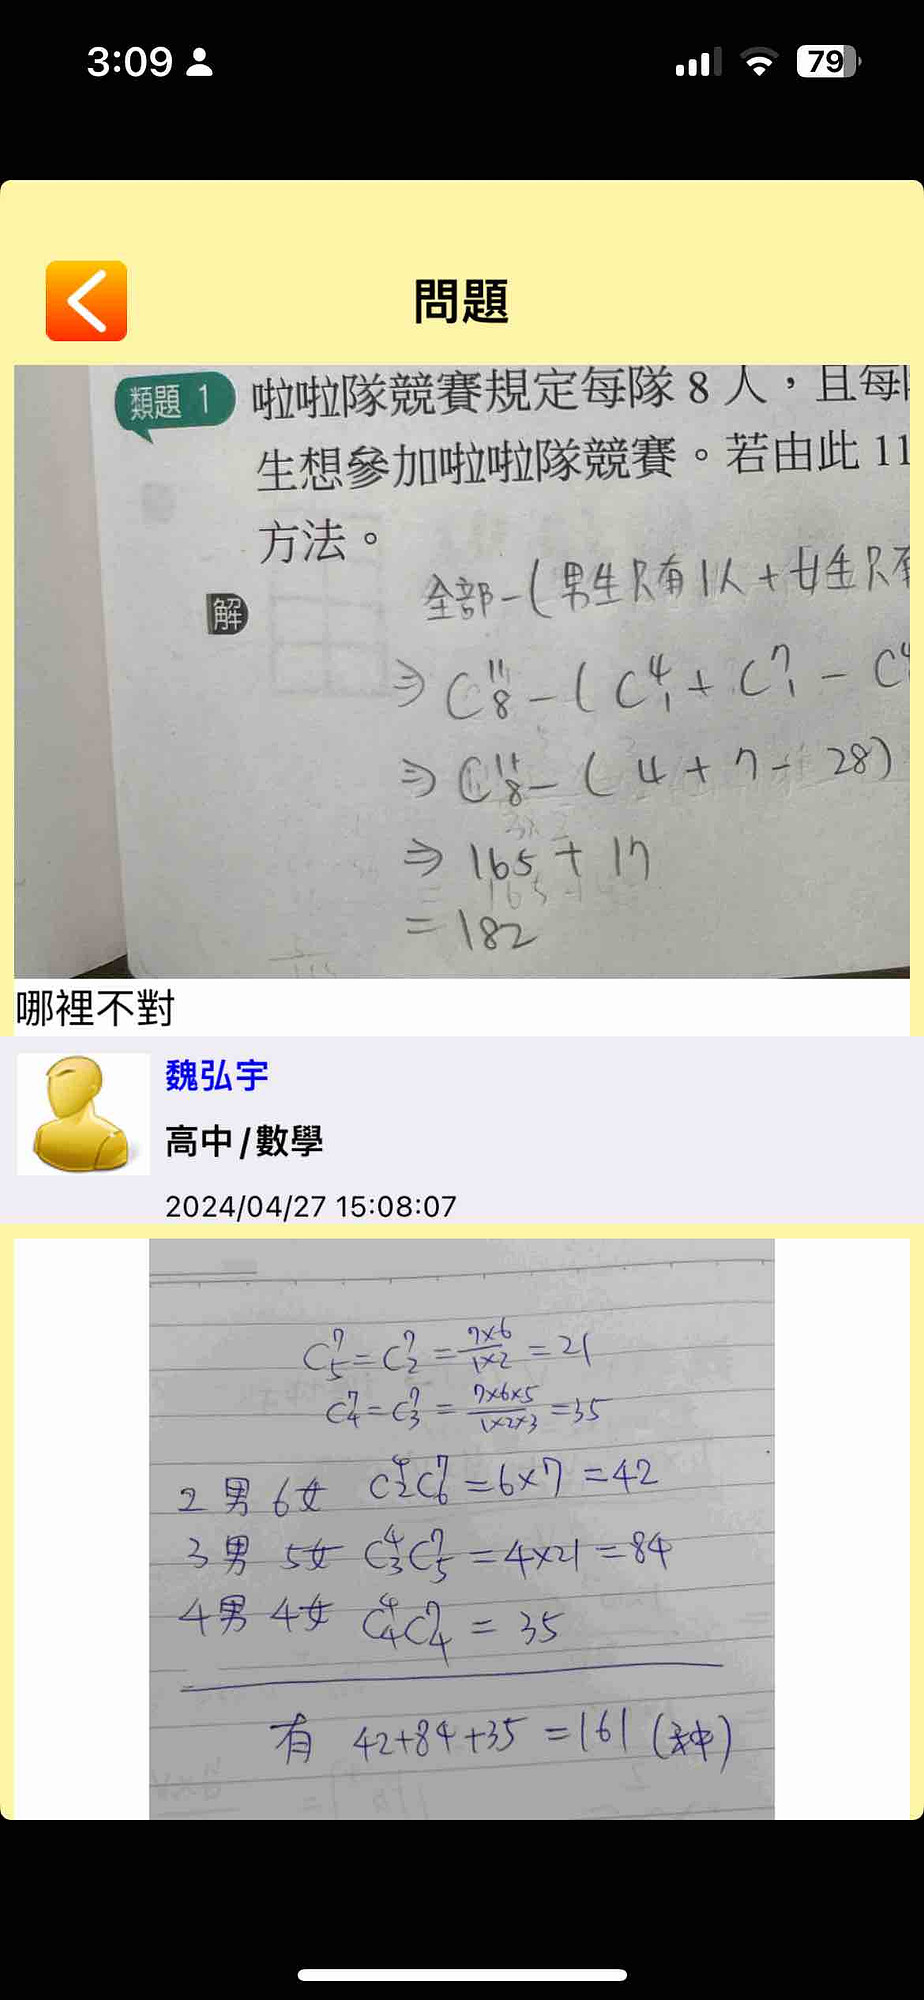 3:09
79
問題
類題 1 啦啦隊競賽規定每隊 8 人，且每
生想參加啦啦隊競賽。若由此 11
方法。
解
全部-(男生只有1人+女生只有
⇒ C¹¹₈-( C⁴₁+ C⁷₁ - C⁴
⇒ C¹¹₈-( 4 + 7 - 28)
⇒ 165 + 17
= 182
哪裡不對
魏弘宇
高中/數學
2024/04/27 15:08:07
C⁷₅=C⁷₂ = 7×6/1×2 = 21
C⁷₄=C⁷₃ = 7×6×5/1×2×3 =35
2男6女 C⁴₂C⁷₆ =6×7 =42
3男 5女 C⁴₃C⁷₅ =4×21 =84
4男 4女 C⁴₄C⁷₄ = 35
有 42+84+35 =161 (种)